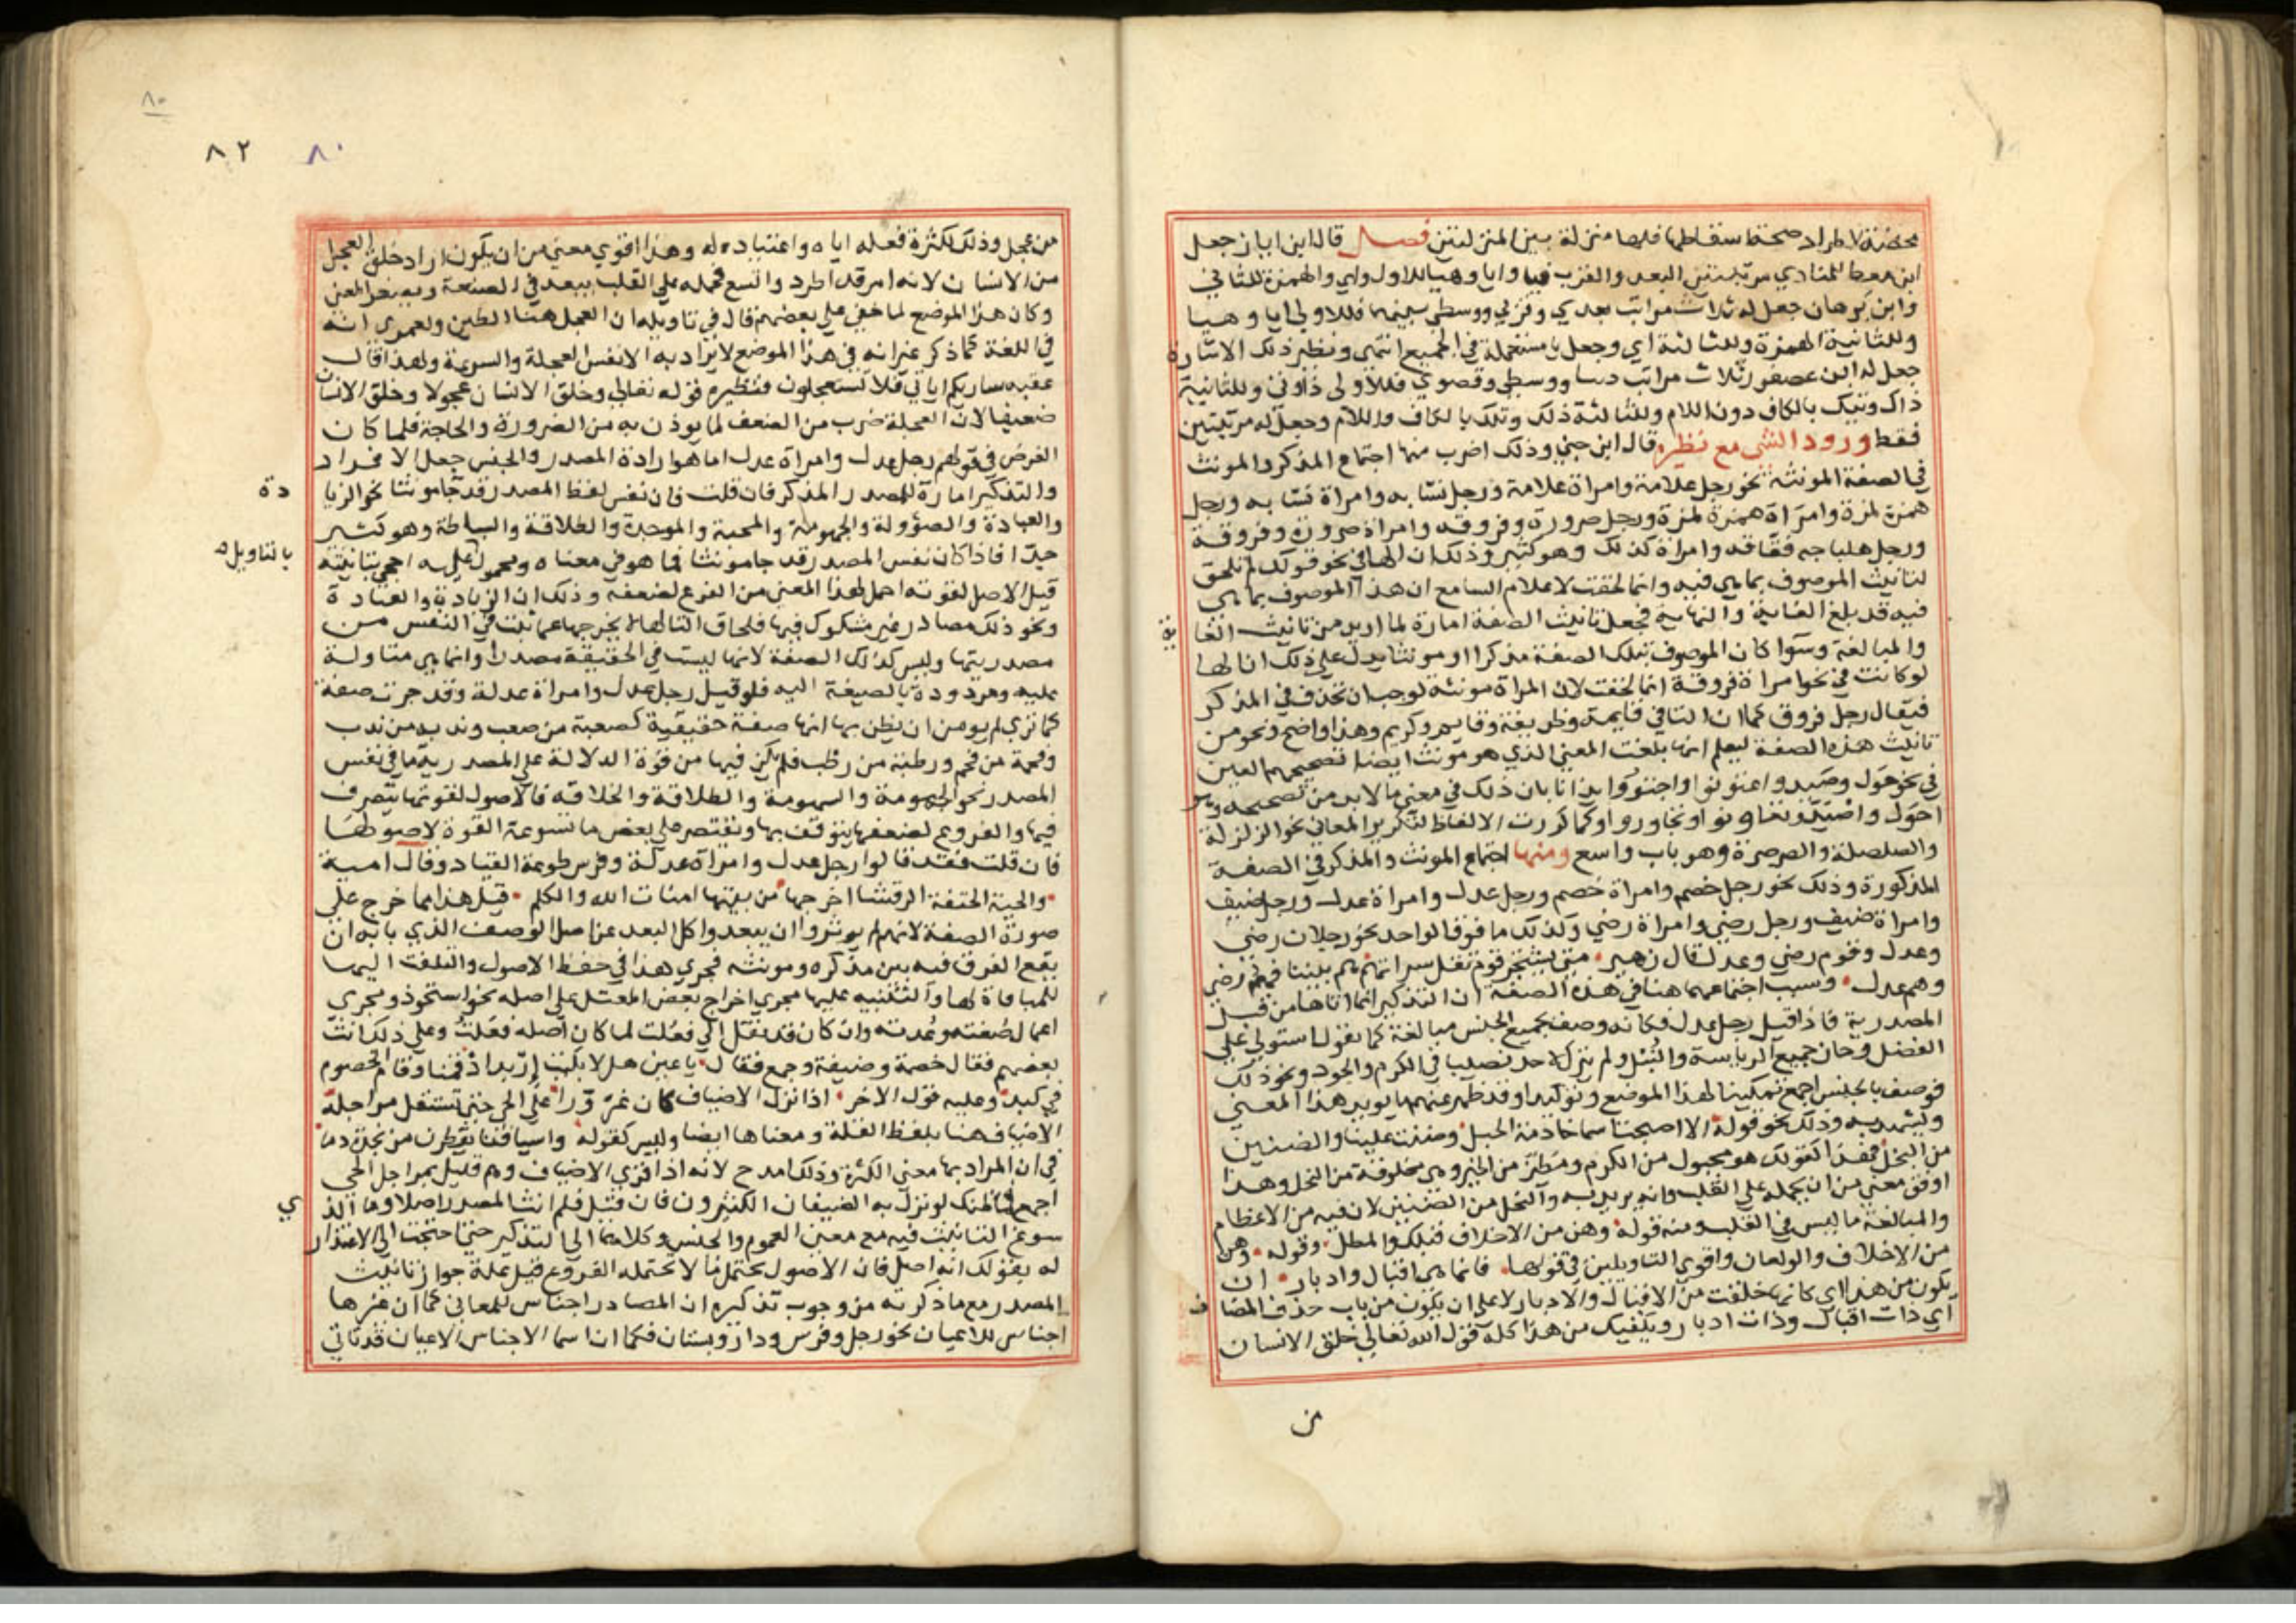 محضة لاطراد صحة اسقاطها فلها منزلة بين المنزلتين فصل قال ابن اياز جعل
ابن معط للمنادي مرتبتين البعد والقرب فيا وايا وهيا للاول واي والهمزة للثاني
وابن برهان جعل له ثلاث مراتب بعدي وقربي ووسطي بينهما فللاولي ايا وهيا
وللثانية الهمزة وللثالثة اي وجعل يا مستعملة في الجميع انتهي ونظير ذلك الاشارة
جعل له ابن عصفور ثلاث مراتب دنيا ووسطي وقصوي فللاولي ذا وتي وللثانية
ذاك وتيك بالكاف دون اللام وللثالثة ذلك وتلك بالكاف واللام وجعل له مرتبتين
فقط ورود الشي مع نظيره قال ابن جني وذلك اضرب منها اجتماع المذكر والمونث
في الصفة المونثة نحو رجل علامة وامراة علامة ورجل نسابه وامراة نسابه ورجل
همزة لمزة وامراة همزة لمزة ورجل صرورة وفروقه وامراة صرورة وفروقة
ورجل هلباجه فقاقه وامراة كذلك وهو كثير وذلك ان الهافي نحو قولك لم تلحق
لتانيث الموصوف بما هي فيه وانما لحقت لاعلام السامع ان هذا الموصوف بما هي
فيه قد بلغ الغاية والنهاية فجعل تانيث الصفة امارة لما اريد من تانيث الغا
ية
والمبالغة وسوا كان الموصوف بتلك الصفة مذكرا او مونثا يدل علي ذلك ان الها
لو كانت في نحو امراة فروقة انما لحقت لان المراة مونثة لوجب ان تحذف في المذكر
فيقال رجل فروق كما ان التا في قايمة وظريفة وقايم وكريم وهذا واضح ونحو من
تانيث هذه الصفة ليعلم انها بلغت المعني الذي هو مونث ايضا تصحيحهم العين
في نحو حول وصيد واعتونوا واجتوروا ايذانا بان ذلك في معني ما لابد من تصحيحه وهو
احول واصيد وتعاونوا وتجاوروا وكما كررت الالفاظ لتكرير المعاني نحو الزلزلة
والصلصلة والصرصرة وهو باب واسع ومنها اجتماع المونث والمذكر في الصفة
المذكورة وذلك نحو رجل خصم وامراة خصم ورجل عدل وامراة عدل ورجل ضيف
وامراة ضيف ورجل رضي وامراة رضي وكذلك ما فوق الواحد نحو رجلان رضي
وعدل وقوم رضي وعدل قال زهير متي يشتجر قوم تقل سراتهم هم بيننا فهم رضي
وهم عدل وسبب اجتماعهما هنا في هذه الصفة ان التذكير انما اتاها من قبل
المصدرية فاذا قيل رجل عدل فكانه وصف بجميع الجنس مبالغة كما يقول استولي علي
الفضل وحاز جميع الرياسة والنبل ولم يترك لاحد نصيبا في الكرم والجود ونحو ذلك
فوصف بالجنس اجمع تمكينا لهذا الموضع وتوكيدا وقد ظهر عنهم ما يويد هذا المعني
ويشهد به وذلك نحو قوله الا اصبحت اسما خاذمة الحبل وضنت علينا والضنين
من البخل فهذا كقولك هو مجبول من الكرم ومطين من الخير وهي مخلوقة من البخل وهذا
اوفق معني من ان تحمله علي القلب وانه يريد به والبخل من الضنين لان فيه من الاعظام
والمبالغة ما ليس في القلب ومنه قوله وهن من الاخلاف قبلك والمطل وقوله وهن
من الاخلاف والولعان واقوي التاويلين في قولها فانما هي اقبال وادبار ان
يكون من هذا اي كانها خلقت من الاقبال والادبار لا علي ان يكون من باب حذف المضا
ف
اي ذات اقبال وذات ادبار ويكفيك من هذا كله قول الله تعالي خلق الانسان
من
٨٠
٨٢ ٨٠
من عجل وذلك لكثرة فعله اياه واعتياده له وهذا اقوي معني من ان يكون اراد خلق العجل
من الانسان لانه امر قد اطرد واتسع فحمله علي القلب يبعد في الصنعة ويصغر المعني
وكان هذا الموضع لما خفي علي بعضهم قال في تاويله ان العجل هنا الطين ولعمري انه
في اللغة كما ذكر غير انه في هذا الموضع لا يراد به الا نفس العجلة والسرعة ولهذا قال
عقبه ساريكم اياتي فلا تستعجلون ونظيره قوله تعالي وخلق الانسان عجولا وخلق الانسان
ضعيفا لان العجلة ضرب من الضعف لما يوذن به من الضرورة والحاجة فلما كان
الغرض في قولهم رجل عدل وامراة عدل اما هو ارادة المصدر والجنس جعل الافراد
والتذكير امارة للمصدر المذكر فان قلت فان نفس لفظ المصدر قد جا مونثا نحو الزيا
دة
والعيادة والضؤولة والجهومة والمحبة والموجدة والطلاقة والبساطة وهو كثير
جدا فاذا كان نفس المصدر قد جا مونثا فما هو في معناه ومحمول عليه احجي بتانيثه
بالتاويل
قيل الاصل لقوته احمل لهذا المعني من الفرع لضعفه وذلك ان الزيادة والعيادة
ونحو ذلك مصادر غير مشكوك فيها فلحاق التا لها لا يخرجها عما ثبت في النفس من
مصدريتها وليس كذلك الصفة لانها ليست في الحقيقة مصدرا وانما هي متاولة
عليه ومردودة بالصيغة اليه فلو قيل رجل عدل وامراة عدلة وقد جرت صفة
كما تري لم يومن ان يظن بها انها صفة حقيقية كصعبة من صعب وندبه من ندب
وفخمة من فخم ورطبة من رطب فلم يكن فيها من قوة الدلالة علي المصدرية ما في نفس
المصدر نحو الجهومة والسهومة والطلاقة والخلاقه فالاصول لقوتها يتصرف
فيها والفروع لضعفها يتوقف بها ويقتصر علي بعض ما تسوغه القوة لاصولها
فان قلت فقد قالوا رجل عدل وامراة عدلة وفرس طوعة القياد وقال امية
والحية الحتفة الرقشا اخرجها من بيتها امنات الله والكلم قيل هذا مما خرج علي
صورة الصفة لانهم لم يوثروا ان يبعدوا كل البعد عن اصل الوصف الذي بابه ان
يقع الفرق فيه بين مذكره ومونثه فجري هذا في حفظ الاصول والتلفت اليها
للمباقاة لها والتنبيه عليها مجري اخراج بعض المعتل علي اصله نحو استحوذ ومجري
اعمال صغته وعدته وان كان قد نقل الي فعلت لما كان اصله فعلت وعلي ذلك انث
بعضهم فقال خصمة وضيفة وجمع فقال يا عين هلا بكيت اربد اذ قمنا وقام الخصوم
في كبد وعليه قول الاخر اذا نزل الاضياف كان عذورا علي الحي حتي تستقل مراجله
الاضياف هنا بلفظ القلة ومعناها ايضا وليس كقوله واسيافنا يقطرن من نجدة دما
في ان المراد بها معني الكثرة وذلك امدح لانه اذا قري الاضياف وهم قليل بمراجل الحي
اجمع فما ظنك لو نزل به الضيفان الكثيرون فان قيل فلم انث المصدر اصلا وما الذ
ي
سوغ التانيث فيه مع معني العموم والجنس وكلاهما الي التذكير حتي احتجت الي الاعتذار
له بقولك انه اصل فان الاصول تحتمل ما لا تحتمله الفروع قيل علة جواز تانيث
المصدر مع ما ذكرته من وجوب تذكيره ان المصادر اجناس للمعاني كما ان غيرها
اجناس للاعيان نحو رجل وفرس ودار وبستان فكما ان اسما الاجناس الاعيان قد تاتي